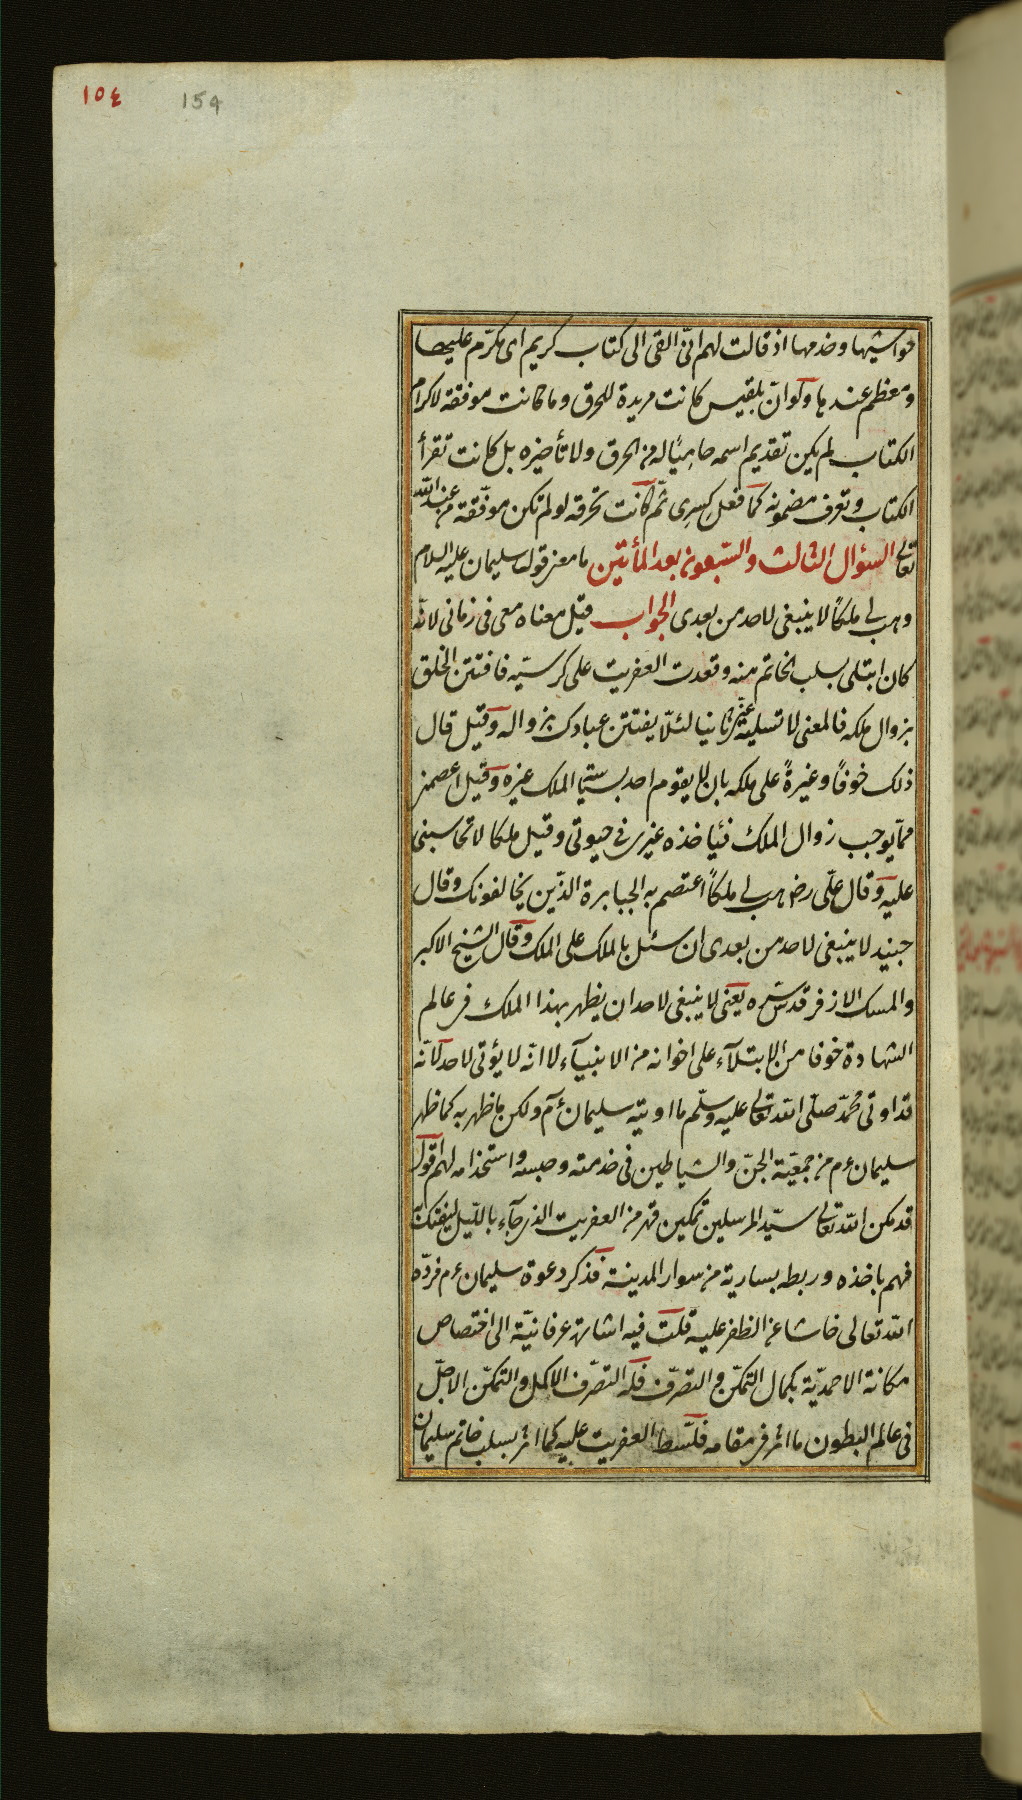 ١٥٤ 154
حواشيها وخدمها اذ قالت لهم انّى القى الى كتاب كريم اى مكرّم عليها
ومعظم عندها ولو انّ بلقيس كانت مريدة للحرق وما كانت موفقة لاكرام
الكتاب لم يكن تقديم اسمه حاميًا له من الحرق ولا تأخيره بل كانت تقرأ
الكتاب وتعرف مضمونه كما فعل كسرى ثمّ كانت تحرقه لو لم تكن موفّقة من عند الله
تعالى السئوال الثالث والسّبعون بعد المأتين ما معنى قول سليمان عليه السلام
وهب لى ملكاً لا ينبغى لاحد من بعدى الجواب قيل معناه معى فى زمانى لانّه
كان ابتلى بسلب الخاتم منه وقعدت العفريت على كرسيّه فافتتن الخلق
بزوال ملكه فالمعنى لا تسلبه عنّى ثانيا لئلّا يفتتن عبادك بزواله وقيل قال
ذلك خوفاً وغيرةً على ملكه بان لا يقوم احد بسياسة الملك غيره وقيل اعصمنى
ممّا يوجب زوال الملك فيأخذه غيرى فى حيوتى وقيل ملكا لا تحاسبنى
عليه وقال علّى رض هب لى ملكاً اعتصم به الجبابرة الذّين يخالفونك وقال
جنيد لا ينبغى لاحد من بعدى ان سئل بالملك على الملك وقال الشيخ الاكبر
والمسك الازفر قدّس سّره يعنى لا ينبغى لاحد ان يظهر بهذا الملك فى عالم
الشهادة خوفا من الابتلآء على اخوانه من الانبيآء لا انّه لا يؤتى لاحد لانّه
قد اوتى محمّد صلّى الله تعالى عليه وسلّم ما اوتيه سليمان ءم ولكن ما ظهر به كما ظهر
سليمان ءم من جمعيّة الجنّ والشياطين فى خدمته وحبسه واستخدامه لهم اقول
قد مكن الله تعالى سيّد المرسلين تمكين قهر من العفريت الذى جآء بالليل ليفتك به
فهم باخذه وربطه بسارية من سوار المدينة فذكر دعوة سليمان ءم فردّه
الله تعالى خاشا عن الظفر عليه قلت فيه اشارة عرفانيّة الى اختصاص
مكانة الاحمديّة بكمال التمكّن والتصرّف فله التصرّف الاكمل والتمكّن الاجلّ
فى عالم البطون ما اثر فى مقامه فلسّط العفريت عليه كما اثر بسلب خاتم سليمان